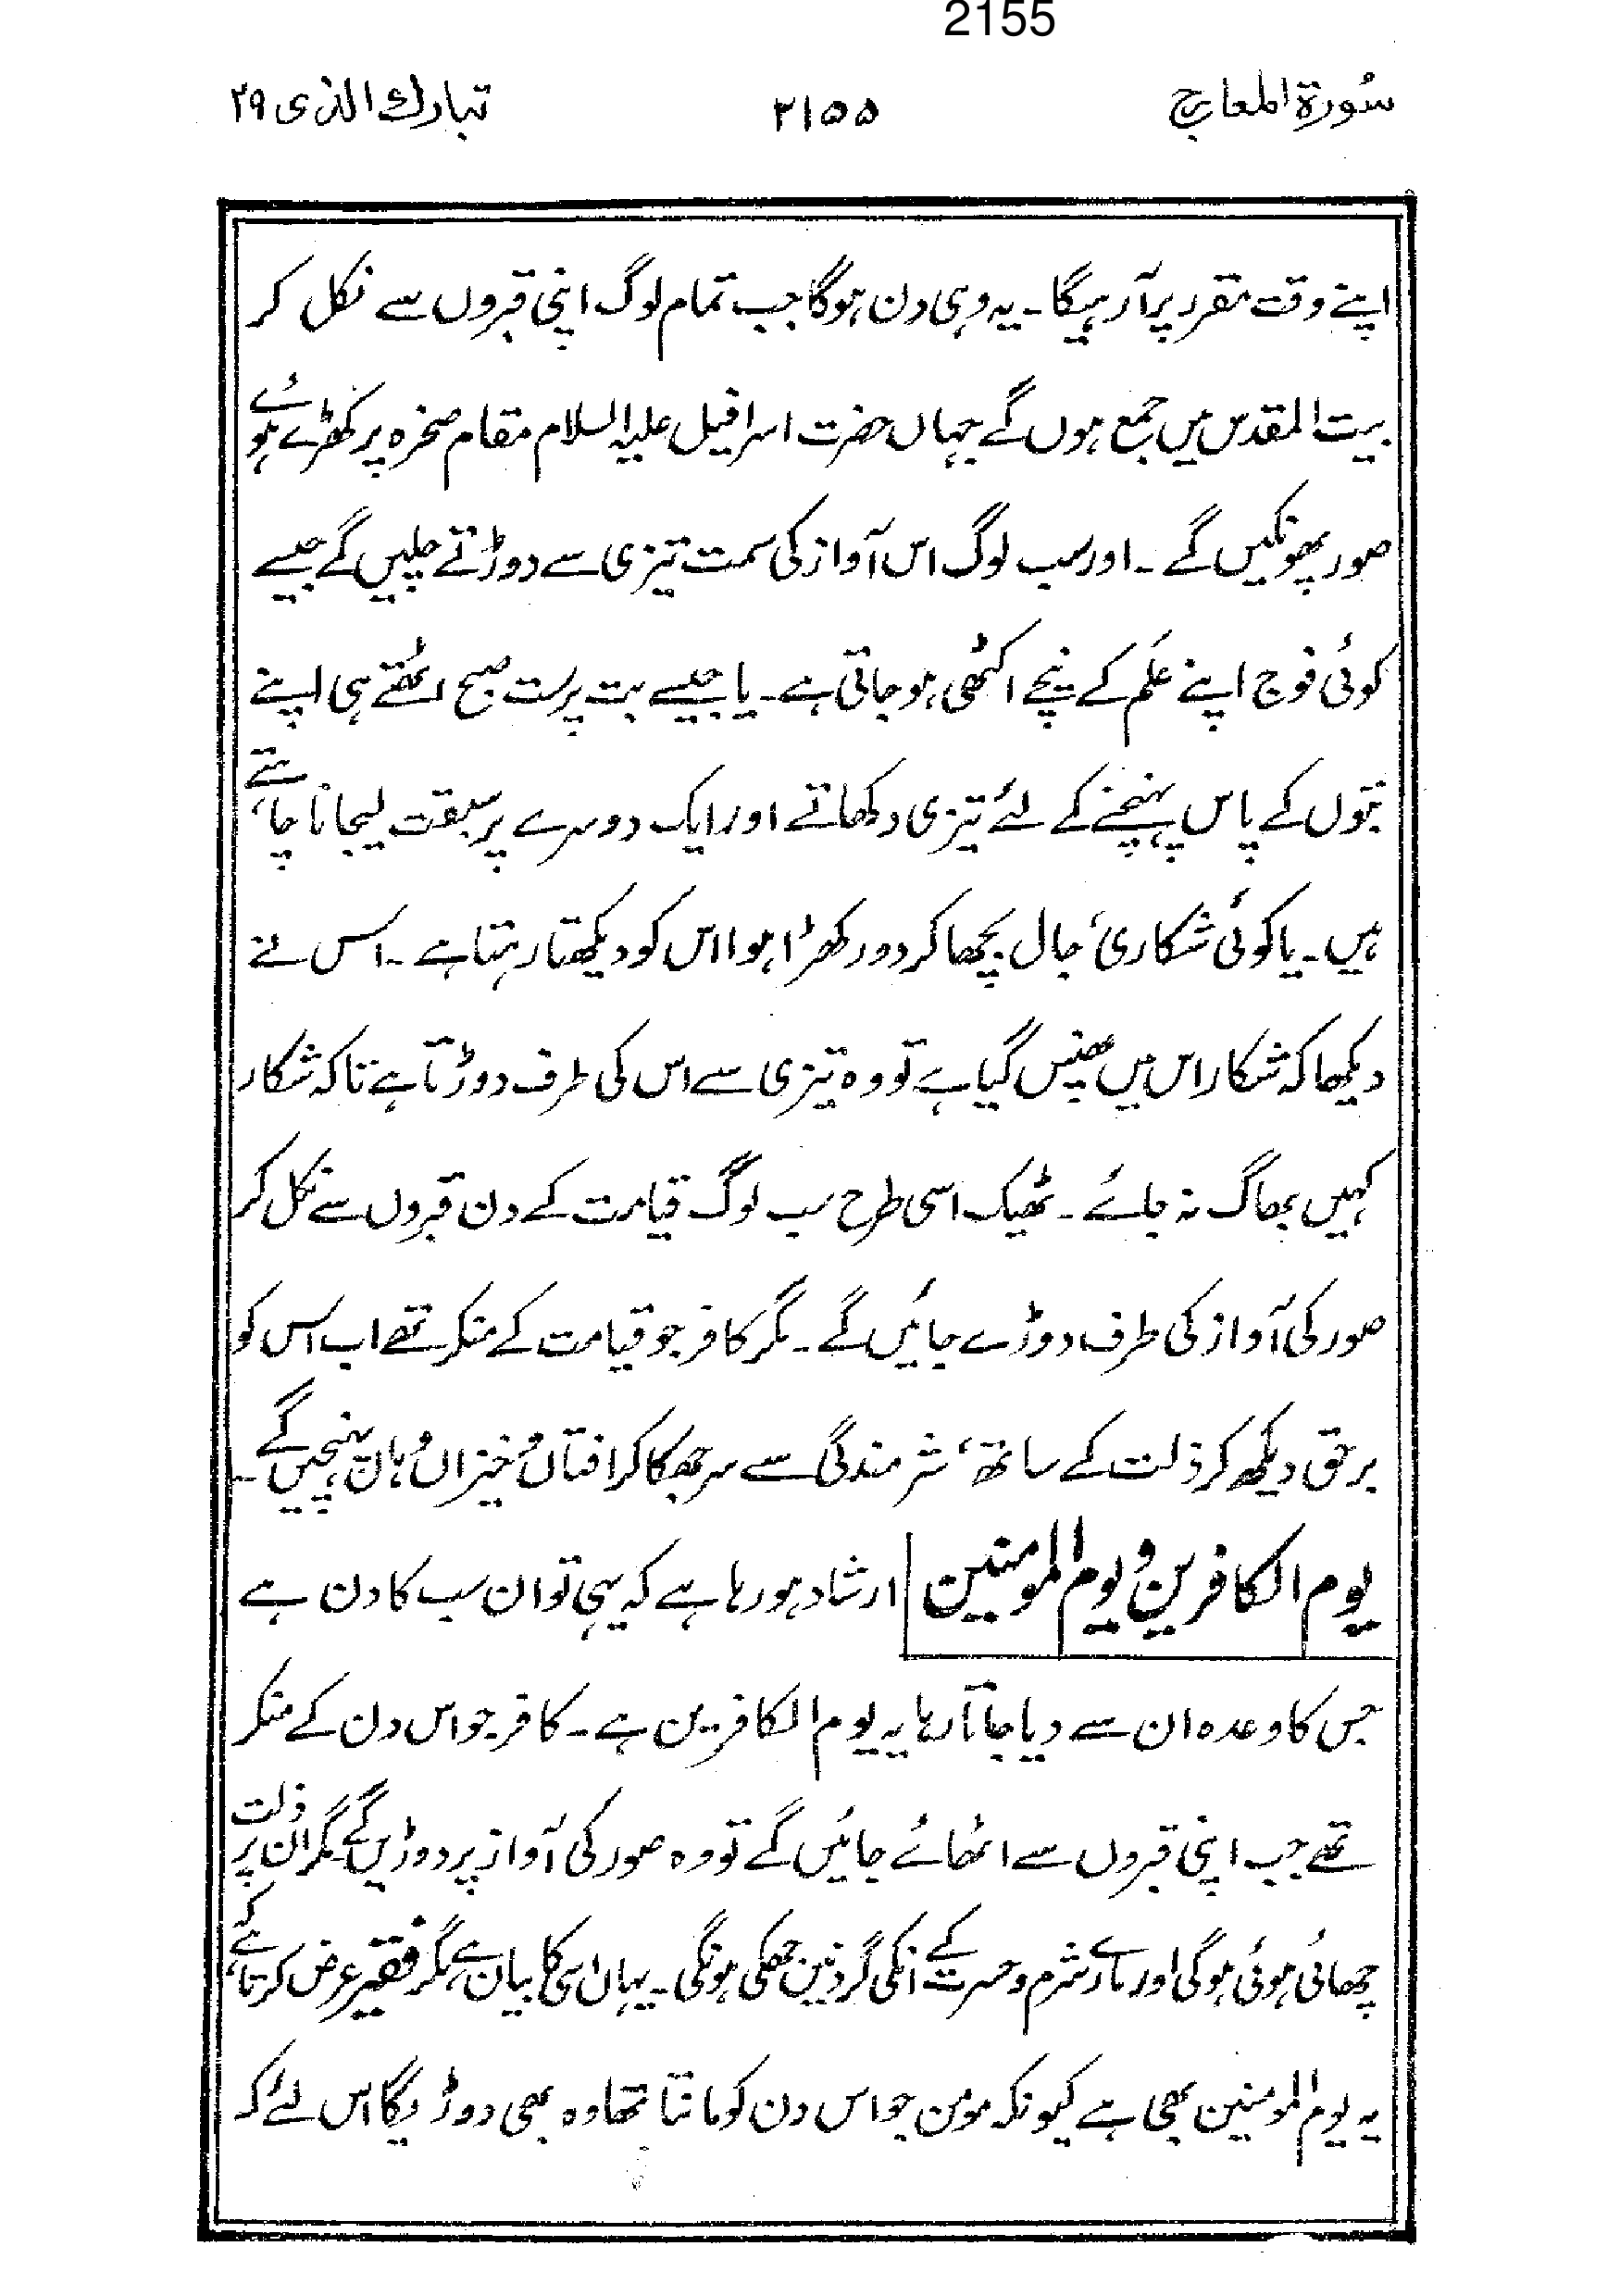 2155
سُورۃ المعارج ۲۱۵۵ تبارك الذی ۲۹
اپنے وقت مقرر پر آ رہیگا۔ یہ وہی دن ہوگا جب تمام لوگ اپنی قبروں سے نکل کر
بیت المقدس میں جمع ہوں گے جہاں حضرت اسرافیل علیہ السلام مقام صخرہ پر کھڑے ہوئے
صور پھونکیں گے ۔ اور سب لوگ اس آواز کی سمت تیزی سے دوڑتے چلیں گے جیسے
کوئی فوج اپنے عَلم کے نیچے اکٹھی ہو جاتی ہے۔ یا جیسے بت پرست صبح اٹھتے ہی اپنے
بتوں کے پاس پہنچنے کے لئے تیزی دکھاتے اور ایک دوسرے پر سبقت لیجانا چاہتے
ہیں۔ یا کوئی شکاری جال بچھا کر دور کھڑا ہوا اس کو دیکھتا رہتا ہے ۔ اس نے
دیکھا کہ شکار اس میں پھنس گیا ہے تو وہ تیزی سے اس کی طرف دوڑتا ہے تاکہ شکار
کہیں بھاگ نہ جائے ۔ ٹھیک اسی طرح سب لوگ قیامت کے دن قبروں سے نکل کر
صور کی آواز کی طرف دوڑے جائیں گے ۔ مگر کافر جو قیامت کے منکر تھے اب اس کو
برحق دیکھ کر ذلت کے ساتھ، شرمندگی سے سر جھکا کر افتاں و خیزاں وہاں پہنچیں گے ۔
یوم الکافرین و یوم المومنین ارشاد ہو رہا ہے کہ یہی تو ان سب کا دن ہے
جس کا وعدہ ان سے دیا جاتا رہا یہ یوم الکافرین ہے ۔ کافر جو اس دن کے منکر
تھے جب اپنی قبروں سے اٹھائے جائیں گے تو وہ صور کی آواز پر دوڑیں گے مگر ان پر ذلت
چھائی ہوئی ہوگی اور مارے شرم و حسرت کے انکی گردنیں جھکی ہونگی۔ یہاں اسی کا بیان ہے، مگر فقیر عرض کرتا ہے کہ
یہ یوم المومنین بھی ہے کیونکہ مومن جو اس دن کو مانتا تھا وہ بھی دوڑیگا اس لئے کہ